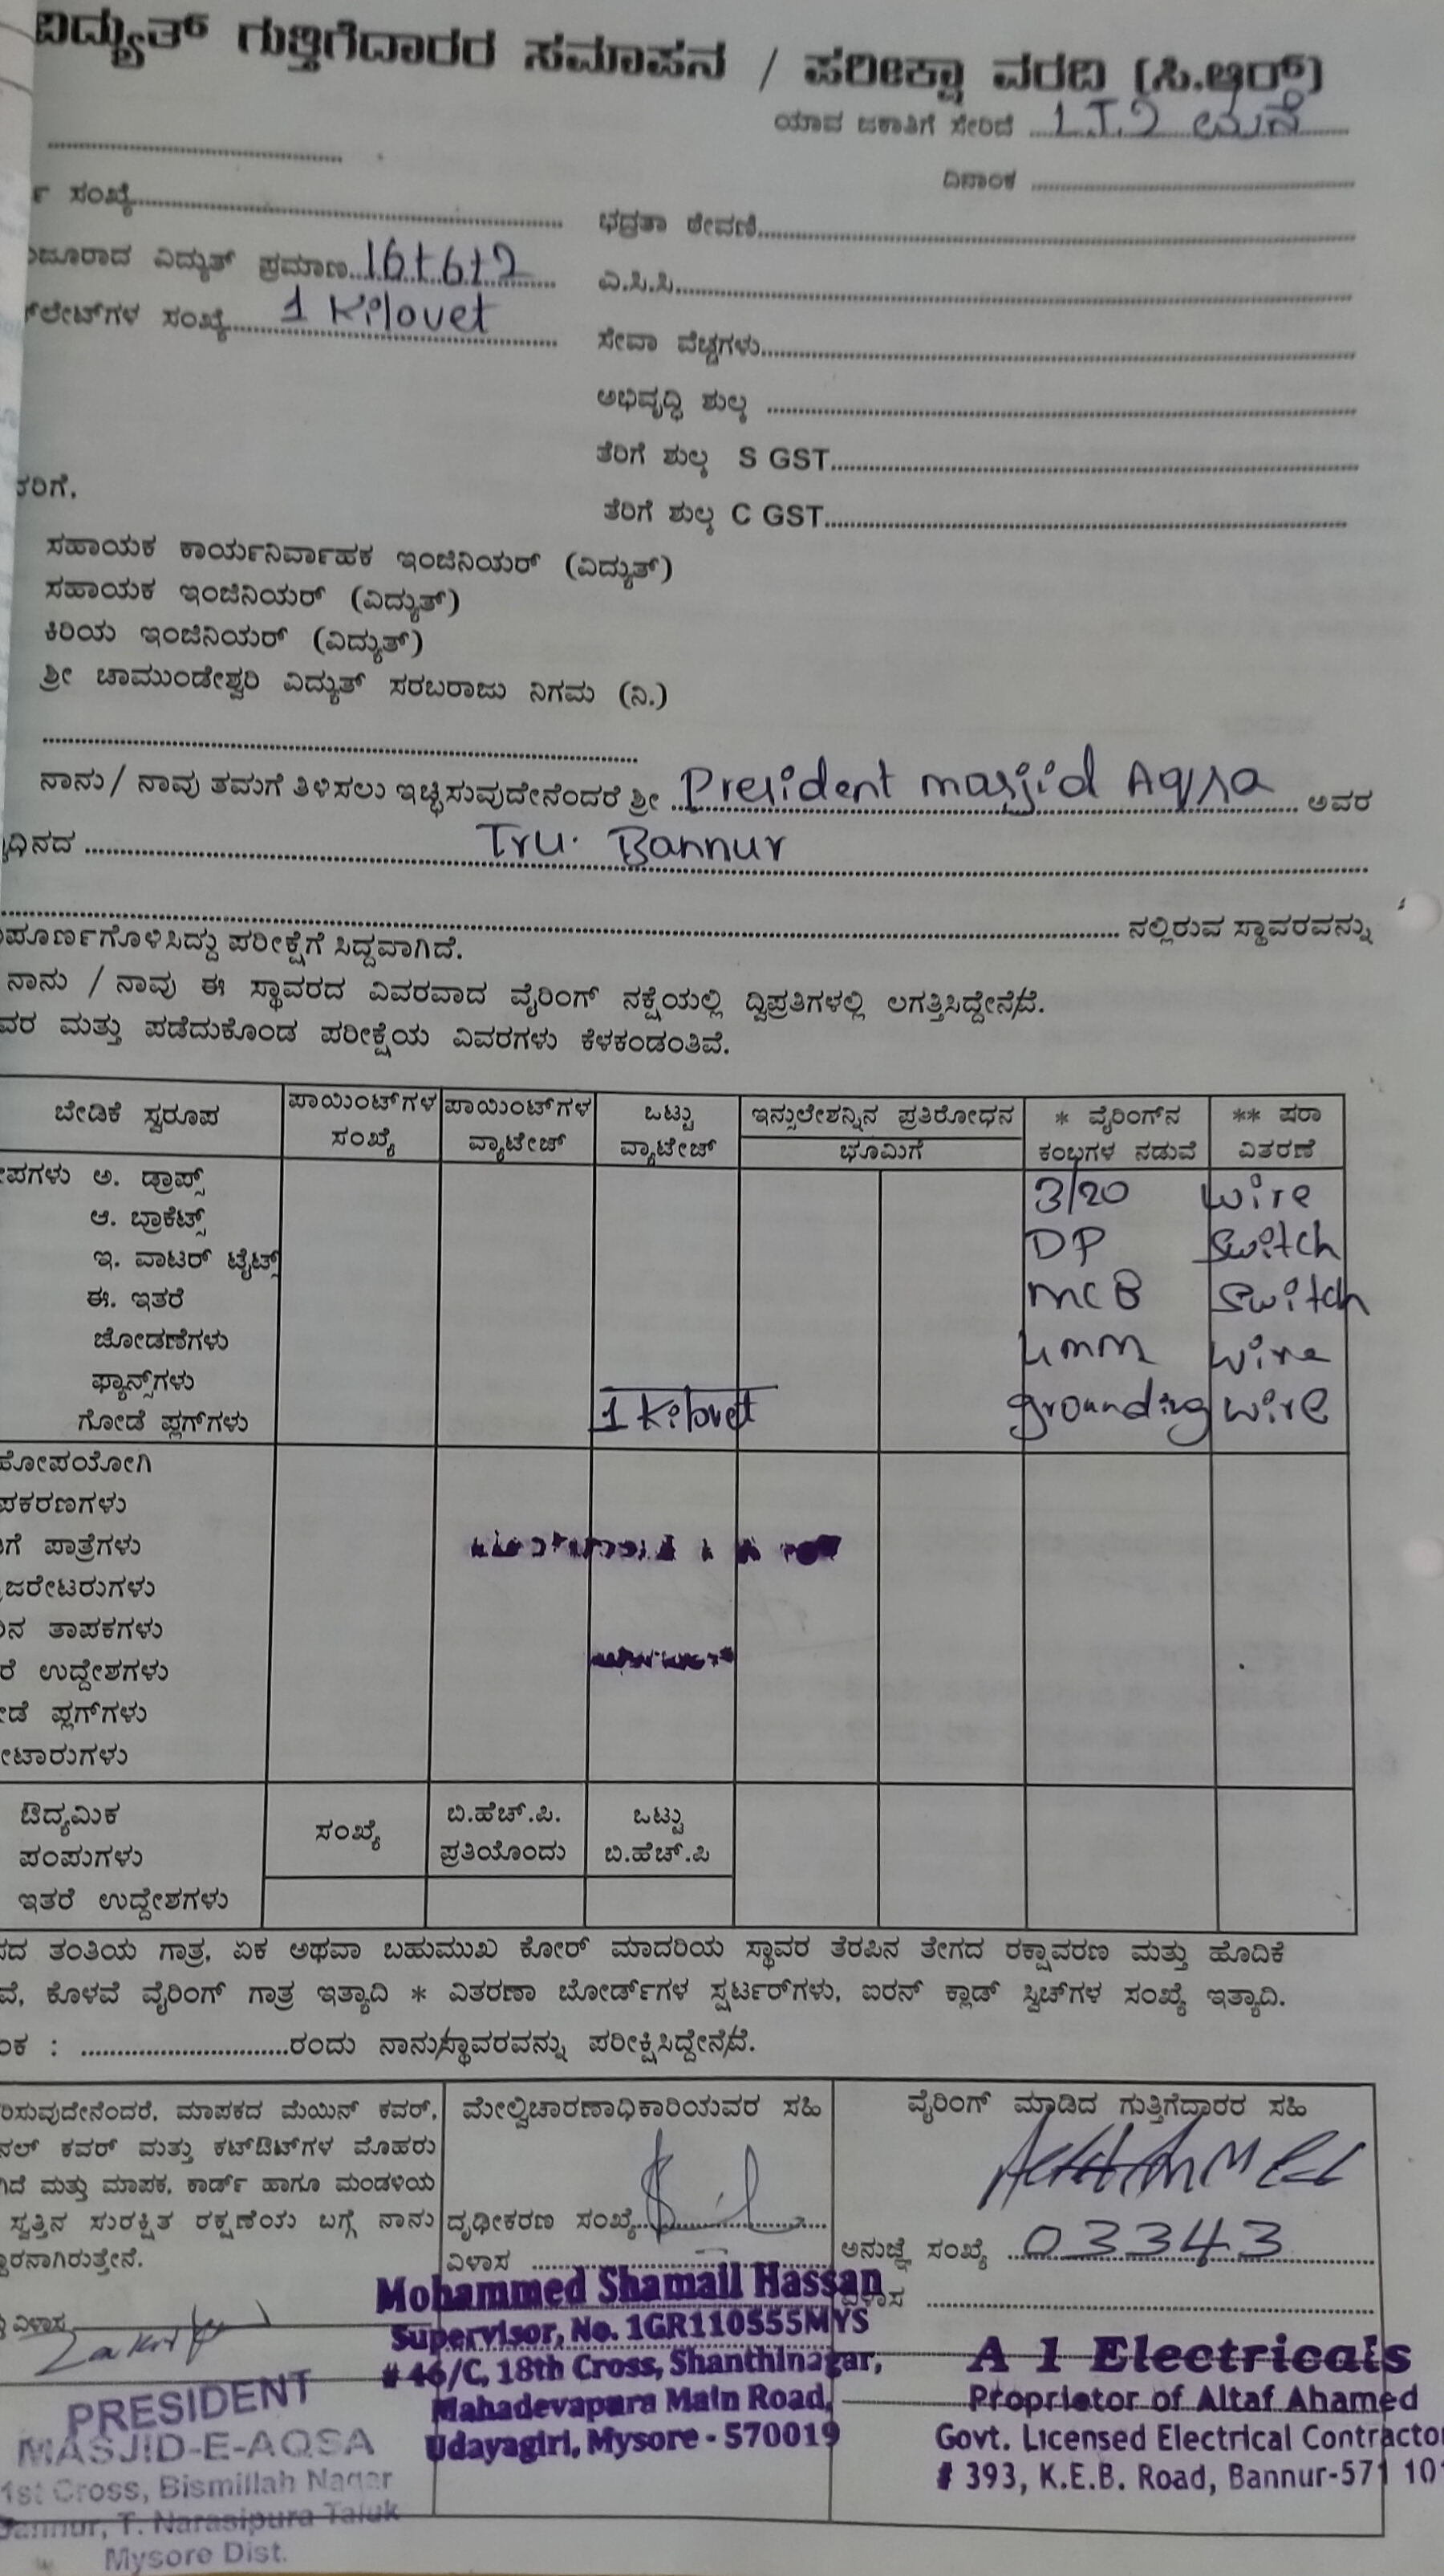 ವಿದ್ಯುತ್ ಗುತ್ತಿಗೆದಾರರ ಸಮಾಪನ / ಪರೀಕ್ಷಾ ವರದಿ (ಸಿ.ಆರ್)
ಯಾವ ಜಕಾತಿಗೆ ಸೇರಿದೆ LT.2 ಮನೆ
ದಿನಾಂಕ
ಸಂಖ್ಯೆ
ಭದ್ರತಾ ಠೇವಣಿ
ವಿದ್ಯುತ್ ಪ್ರಮಾಣ 16+6+2
ಎ.ಸಿ.ಸಿ
ಸಂಖ್ಯೆ 1 Kilovet
ಸೇವಾ ವೆಚ್ಚಗಳು
ಅಭಿವೃದ್ಧಿ ಶುಲ್ಕ
ತೆರಿಗೆ ಶುಲ್ಕ S GST
ತೆರಿಗೆ ಶುಲ್ಕ C GST
ಸಹಾಯಕ ಕಾರ್ಯನಿರ್ವಾಹಕ ಇಂಜಿನಿಯರ್ (ವಿದ್ಯುತ್)
ಸಹಾಯಕ ಇಂಜಿನಿಯರ್ (ವಿದ್ಯುತ್)
ಕಿರಿಯ ಇಂಜಿನಿಯರ್ (ವಿದ್ಯುತ್)
ಶ್ರೀ ಚಾಮುಂಡೇಶ್ವರಿ ವಿದ್ಯುತ್ ಸರಬರಾಜು ನಿಗಮ (ನಿ.)
ನಾನು/ ನಾವು ತಮಗೆ ತಿಳಿಸಲು ಇಚ್ಛಿಸುವುದೇನೆಂದರೆ ಶ್ರೀ President masjid Aqsa ಅವರ
Bannur
ನಲ್ಲಿರುವ ಸ್ಥಾವರವನ್ನು
ಪೂರ್ಣಗೊಳಿಸಿದ್ದು ಪರೀಕ್ಷೆಗೆ ಸಿದ್ದವಾಗಿದೆ.
ನಾನು / ನಾವು ಈ ಸ್ಥಾವರದ ವಿವರವಾದ ವೈರಿಂಗ್ ನಕ್ಷೆಯಲ್ಲಿ ದ್ವಿಪ್ರತಿಗಳಲ್ಲಿ ಲಗತ್ತಿಸಿದ್ದೇನೆ/ವೆ.
ವರ ಮತ್ತು ಪಡೆದುಕೊಂಡ ಪರೀಕ್ಷೆಯ ವಿವರಗಳು ಕೆಳಕಂಡಂತಿವೆ.
ಬೇಡಿಕೆ ಸ್ವರೂಪ ಪಾಯಿಂಟ್‌ಗಳ ಸಂಖ್ಯೆ ಪಾಯಿಂಟ್‌ಗಳ ವ್ಯಾಟೇಜ್ ಒಟ್ಟು ವ್ಯಾಟೇಜ್ ಇನ್ಸುಲೇಶನ್ನಿನ ಪ್ರತಿರೋಧನ ಭೂಮಿಗೆ * ವೈರಿಂಗ್‌ನ ಕಂಬಗಳ ನಡುವೆ ** ಷರಾ ವಿತರಣೆ
ಪಗಳು ಅ. ಡ್ರಾಪ್ಸ್ 3/20 wire
ಆ. ಬ್ರಾಕೆಟ್ಸ್ DP Switch
ಇ. ವಾಟರ್ ಟೈಟ್ಸ್ MCB Switch
ಈ. ಇತರೆ
ಜೋಡಣೆಗಳು 4mm wire
ಫ್ಯಾನ್ಸ್‌ಗಳು
ಗೋಡೆ ಪ್ಲಗ್‌ಗಳು 1 Kilovet grounding wire
ಹೋಪಯೋಗಿ
ಪಕರಣಗಳು
ಗೆ ಪಾತ್ರೆಗಳು
ಜರೇಟರುಗಳು
ನ ತಾಪಕಗಳು
ರೆ ಉದ್ದೇಶಗಳು
ಡೆ ಪ್ಲಗ್‌ಗಳು
ಟಾರುಗಳು
ಔದ್ಯಮಿಕ ಸಂಖ್ಯೆ ಬಿ.ಹೆಚ್.ಪಿ. ಪ್ರತಿಯೊಂದು ಒಟ್ಟು ಬಿ.ಹೆಚ್.ಪಿ
ಪಂಪುಗಳು
ಇತರೆ ಉದ್ದೇಶಗಳು
ಪದ ತಂತಿಯ ಗಾತ್ರ, ಏಕ ಅಥವಾ ಬಹುಮುಖ ಕೋರ್ ಮಾದರಿಯ ಸ್ಥಾವರ ತೆರಪಿನ ತೇಗದ ರಕ್ಷಾವರಣ ಮತ್ತು ಹೊದಿಕೆ
ವೆ, ಕೊಳವೆ ವೈರಿಂಗ್ ಗಾತ್ರ ಇತ್ಯಾದಿ * ವಿತರಣಾ ಬೋರ್ಡ್‌ಗಳ ಸ್ಟರ್ಟರ್‌ಗಳು, ಐರನ್ ಕ್ಲಾಡ್ ಸ್ವಿಚ್‌ಗಳ ಸಂಖ್ಯೆ ಇತ್ಯಾದಿ.
ಂಕ : ರಂದು ನಾನು/ಸ್ಥಾವರವನ್ನು ಪರೀಕ್ಷಿಸಿದ್ದೇನೆ/ವೆ.
ರಿಸುವುದೇನೆಂದರೆ, ಮಾಪಕದ ಮೆಯಿನ್ ಕವರ್,
ನಲ್ ಕವರ್ ಮತ್ತು ಕಟ್‌ಔಟ್‌ಗಳ ಮೊಹರು
ಗಿದೆ ಮತ್ತು ಮಾಪಕ, ಕಾರ್ಡ್ ಹಾಗೂ ಮಂಡಳಿಯ
ಸ್ವತ್ತಿನ ಸುರಕ್ಷಿತ ರಕ್ಷಣೆಯ ಬಗ್ಗೆ ನಾನು
ದಾರನಾಗಿರುತ್ತೇನೆ.
ವಿಳಾಸ
PRESIDENT
MASJID-E-AQSA
1st Cross, Bismillah Nagar
Bannur, T. Narasipura Taluk
Mysore Dist.
ಮೇಲ್ವಿಚಾರಣಾಧಿಕಾರಿಯವರ ಸಹಿ
ದೃಢೀಕರಣ ಸಂಖ್ಯೆ
ವಿಳಾಸ
Mohammed Shamail Hassan
Supervisor, No. 1GR110555MYS
# 46/C, 18th Cross, Shanthinagar,
Mahadevapura Main Road,
Udayagiri, Mysore - 570019
ವೈರಿಂಗ್ ಮಾಡಿದ ಗುತ್ತಿಗೆದಾರರ ಸಹಿ
ಅನುಜ್ಞೆ ಸಂಖ್ಯೆ 03343
ವಿಳಾಸ
A 1 Electricals
Proprietor of Altaf Ahamed
Govt. Licensed Electrical Contractor
# 393, K.E.B. Road, Bannur-571 101